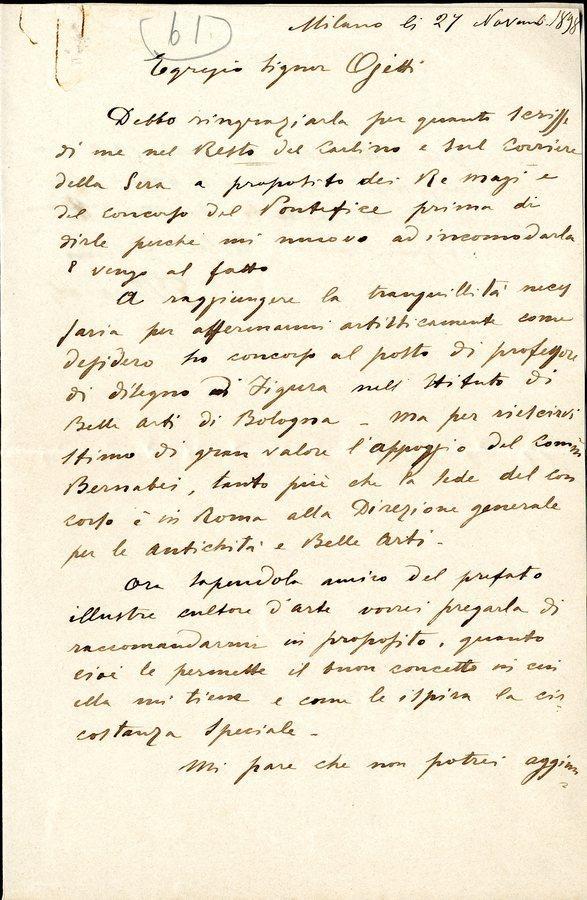 61
Milano li 27 Novemb. 1898
Egregio Signor Ojetti
Debbo ringraziarla per quanto scrisse
di me nel Resto del Carlino e sul Corriere
della Sera a proposito dei Re magi e
del concorso del Pontefice prima di
dirle perchè mi muovo ad incomodarla
e vengo al fatto
A raggiungere la tranquillità neces
saria per affermarmi artisticamente come
desidero ho concorso al posto di professore
di disegno di Figura nell'Istituto di
Belle Arti di Bologna - Ma per riescirvi
stimo di gran valore l'appoggio del Comm
Bernabei, tanto più che la sede del con
corso è in Roma alla Direzione generale
per le Antichità e Belle Arti -
Ora sapendola amico del prefato
illustre cultore d'arte vorrei pregarla di
raccomandarmi in proposito, quanto
cioè le permette il buon concetto in cui
ella mi tiene e come le ispira la cir-
costanza speciale -
Mi pare che non potrei aggiun